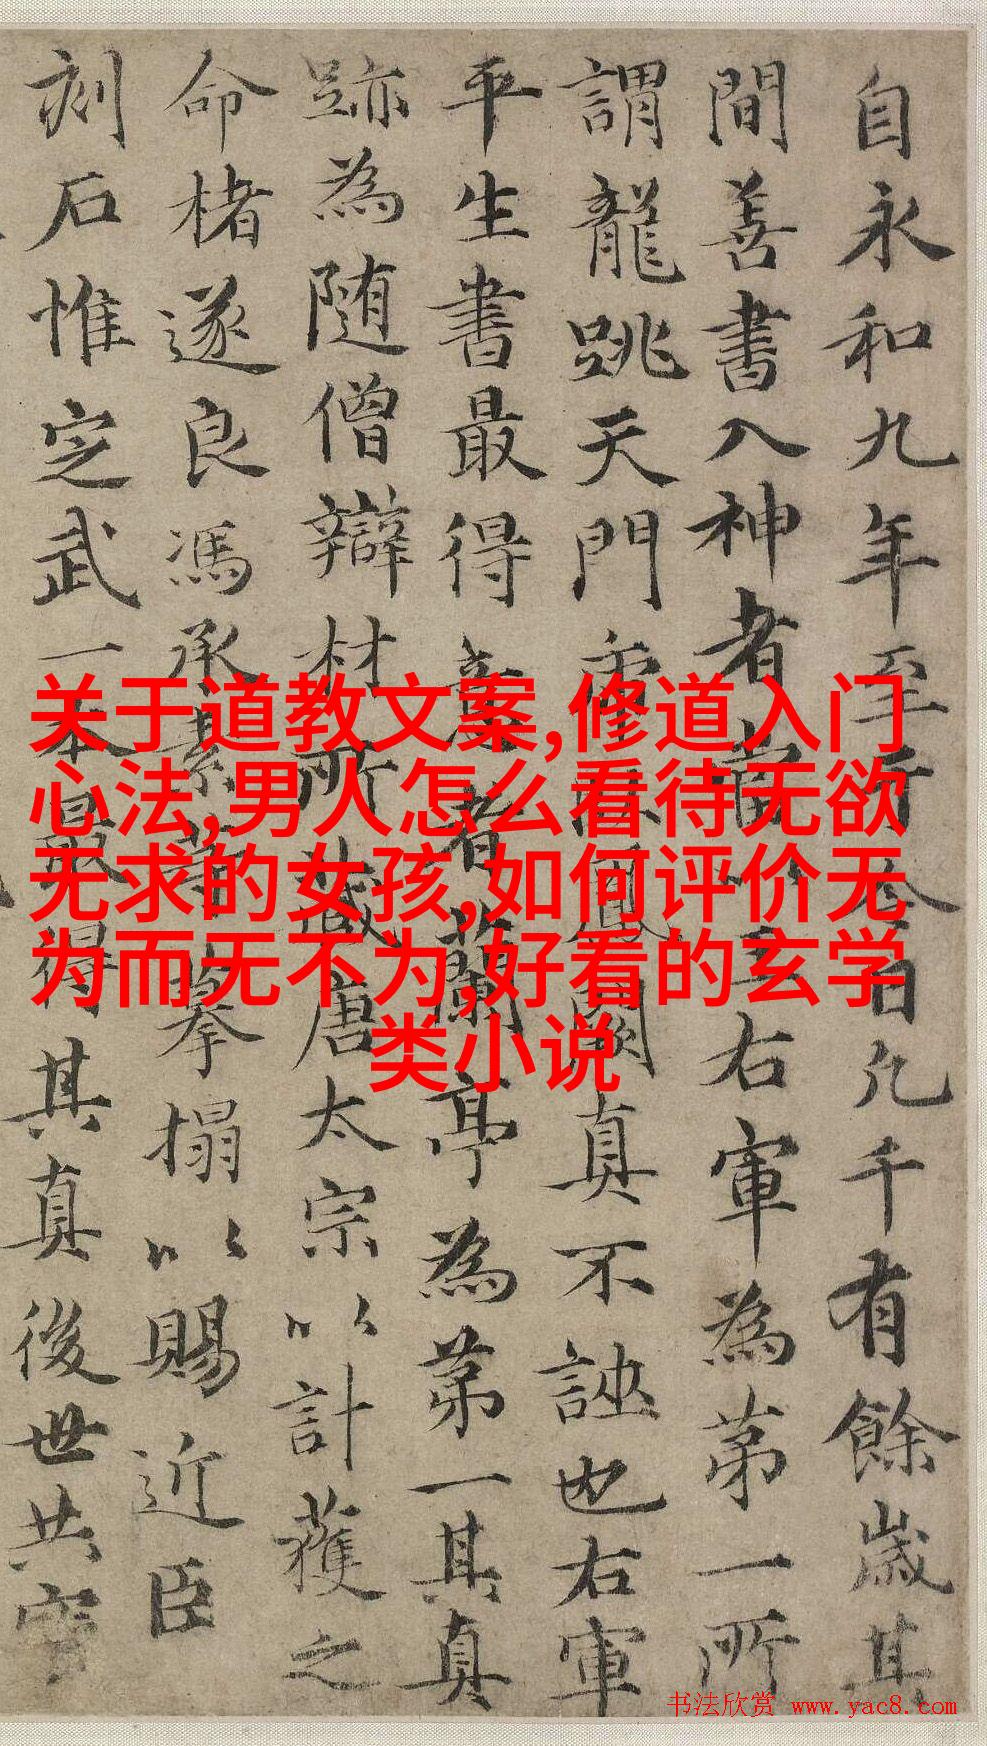 自永和九年至於今日凡千有餘歲其
間善書入神者當以王右軍為第一所
謂龍跳天門虎卧鳳閣真不誣也右軍
平生書最得意者蘭亭為第一其真
跡為随僧辯材所藏唐太宗以計獲之
命楮遂良馮承素等摹搨以賜近臣
刻石惟定武一本最得其真後世共寶
关于道教文案,修道入门
心法,男人怎么看待无欲
无求的女孩,如何评价无
为而无不为,好看的玄学
类小说
书法欣赏 www.yac8.com